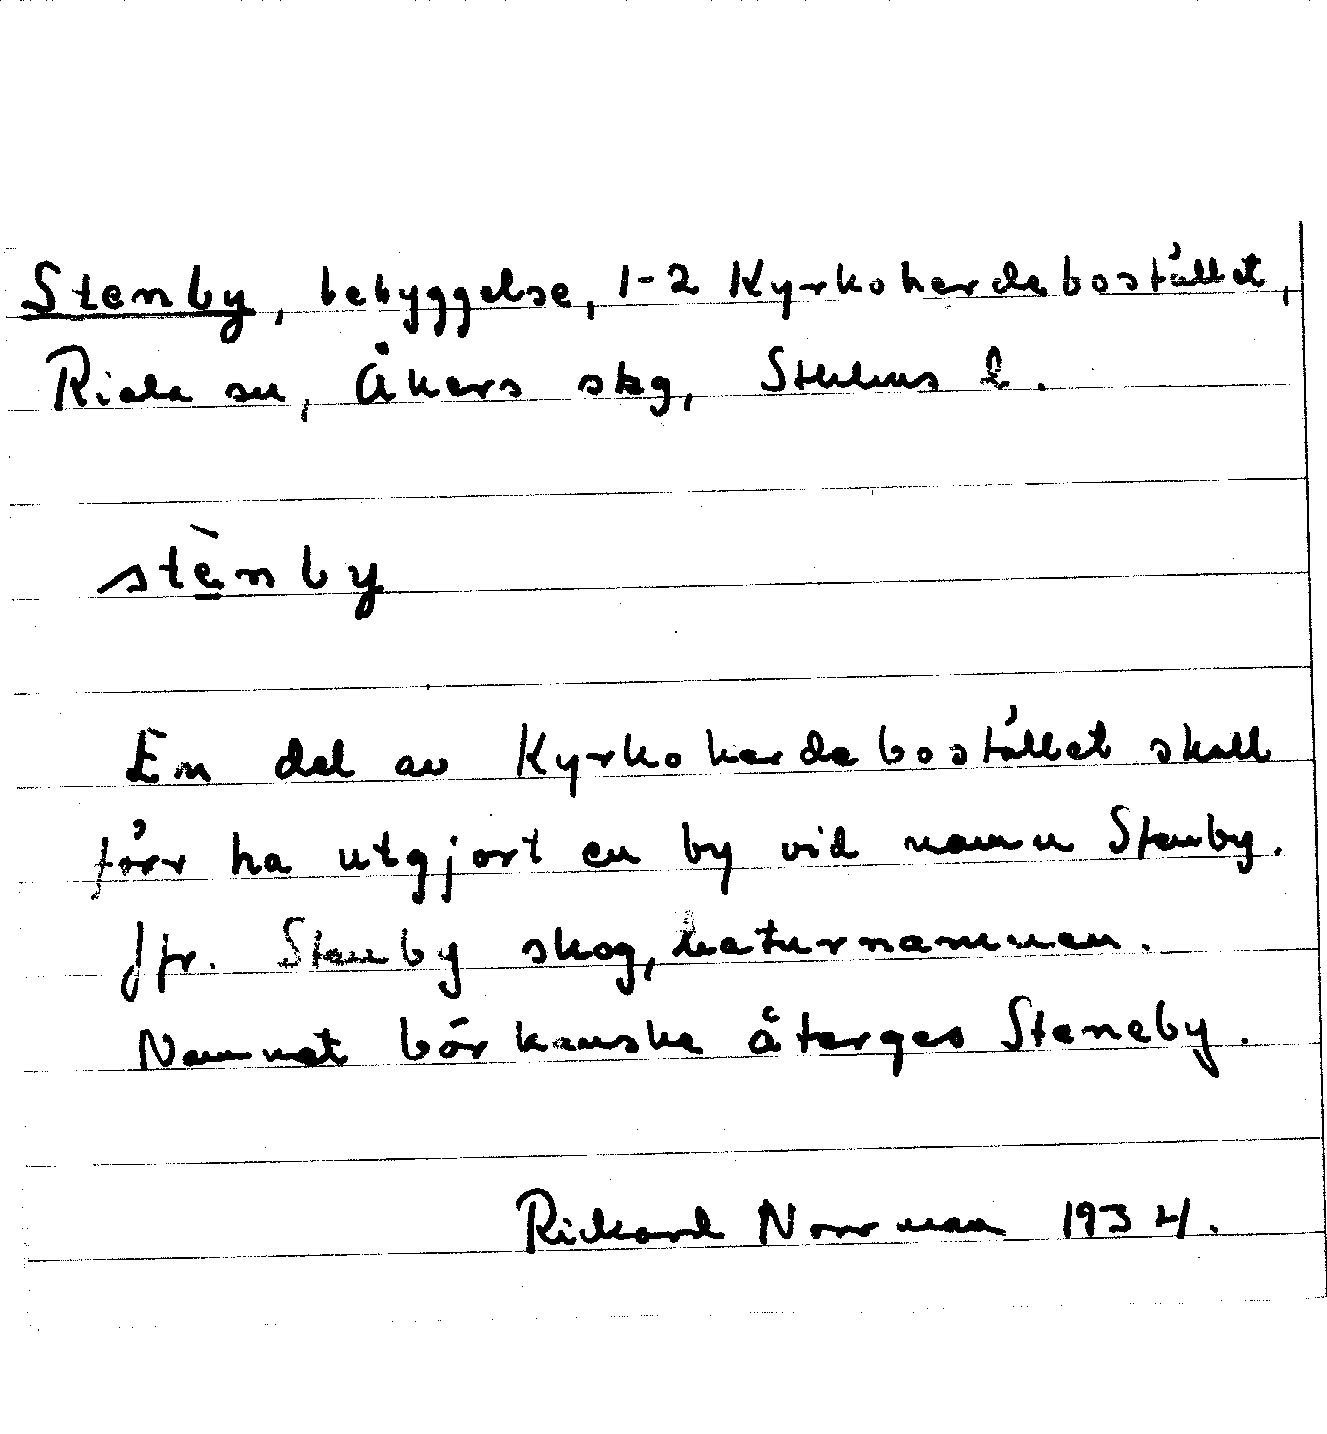 Stenby, bebyggelse, 1-2 Kyrkoherdebostället,
Riala sn, Åkers skg, Sthlms l.
stènby
En del av Kyrkoherdebostället skall
förr ha utgjort en by vid namn Stenby.
Jfr. Stenby skog, naturnamnen.
Namnet bör kanske återges Steneby.
Rickard Norrman 1934.